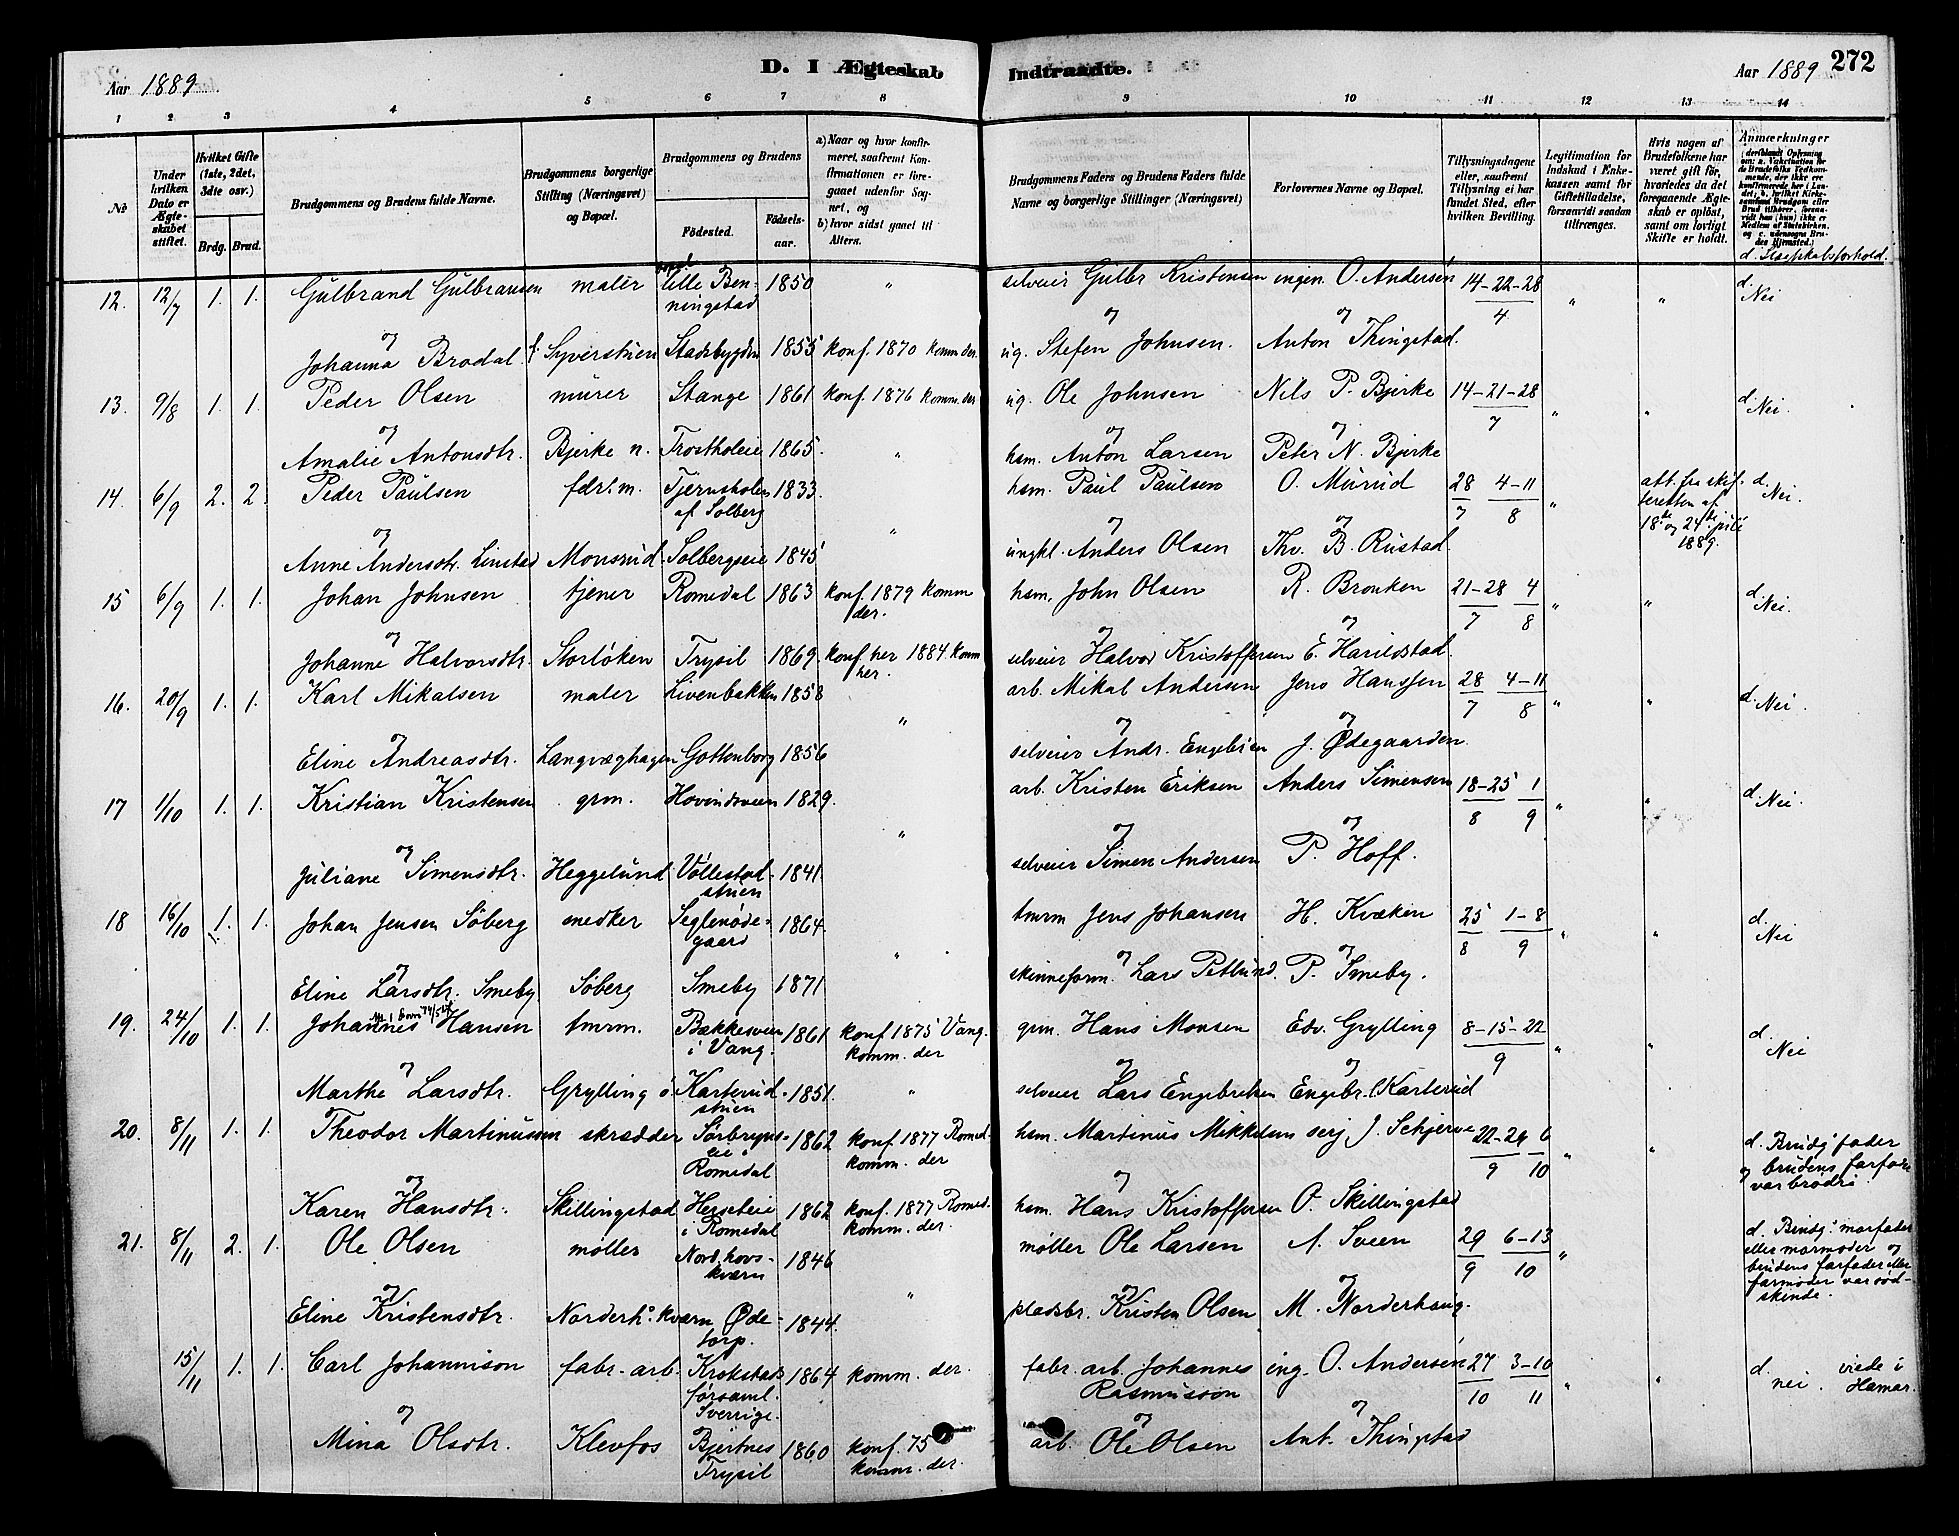 Aar 1889
D. I Ægteskab Indtraadte.
Aar 1889 272
1 2 3 4 5 6 7 8 9 10 11 12 13 14
№
Under hvilken Dato er Ægteskabet stiftet.
Hvilket Gifte (1ste, 2det, 3dte osv.)
Brdg. Brud.
Brudgommens og Brudens fulde Navne.
Brudgommens borgerlige Stilling (Næringsvei) og Bopæl.
Brudgommens og Brudens
Födested.
Födselsaar.
a) Naar og hvor konfirmeret, saafremt Konfirmationen er foregaaet udenfor Sognet, og
b) hvor sidst gaaet til Alters.
Brudgommens Faders og Brudens Faders fulde Navne og borgerlige Stillinger (Næringsvei)
Forlovernes Navne og Bopæl.
Tillysningsdagene eller, saafremt Tillysning ei har fundet Sted, efter hvilken Bevilling.
Legitimation for Indskud i Enkekassen samt for Giftetilladelse, forsaavidt saadan tiltrænges.
Hvis nogen af Brudefolkene har været gift før, hvorledes da det foregaaende Ægteskab er oplöst, samt om lovligt Skifte er holdt.
Anmærkninger
d. Slægtskabsforhold.
12. 12/7 1. 1. Gulbrand Gulbransen maler lille Benningstad 1850 " selveier Gulbr Kristensen ingen. O. Andersen 14-22-28/4 " " d. Nei
og
Johanna Brodal f. Syverstuen Stadsbygden 1855 konf. 1870 komm der. ug. Stefen Johnsen. Anton Thingstad.
13. 9/8 1. 1. Peder Olsen murer Stange 1861 konf. 1876 komm. der ug. Ole Johnsen Nils P. Bjerke 14-21-28/7 " " d. Nei
og
Amalie Antonsdtr. Bjerke n. Trostholeie 1865. " hsm. Anton Larsen Peter N. Bjerke
14 6/9 2. 2. Peder Paulsen fdrl. m. Tjernsholen af Solberg 1833. hsm. Paul Paulsen O. Murud 28/7 4-11/8 " att. fra skifteretten af 18de og 24de juli 1889. d. Nei.
og
Anne Andersdtr. Linstad Monsrud Solbergseie 1845 " ungkl. Anders Olsen Thv. B. Rustad.
15 6/9 1. 1. Johan Johnsen tjener Romedal 1863 konf. 1879 komm der. hsm. John Olsen R. Bronken 21-28/7 4/8 " " d. Nei.
og
Johanne Halvorsdtr. Storløken Trysil 1869. konf. her 1884. komm her. selveier Halvor Kristoffersen E. Harildstad.
16. 20/9 1. 1. Karl Mikalsen maler Livenbakken 1858 arb. Mikal Andersen Jens Hanssen 28/7 4-11/8 " " d. Nei.
og "
Eline Andreasdtr. Langvæghagen Gottenborg 1856 selveier Andr. Engebsen J. Ødegaarden.
17 1/10 1. 1. Kristian Kristensen grm. Hovindsveen 1829. arb. Kristen Eriksen Anders Simensen 18-25/8 1/9 " " d. Nei.
og "
Juliane Simensdtr. Heggelund Vollestadstuen 1841. selveier Simen Andersen P. Hoff.
18 16/10 1. 1. Johan Jensen Söberg snedker Seglenødegaard 1864. tmrm Jens Johansen H. Kvæken 25/8 1-8/9 " " d. Nei
og "
Eline Larsdtr. Smeby Söberg Smeby 1871 skinneform. Lars Petlund. P. Smeby.
19. 24/10 1. 1. Johannes Hansen tmrm. Bækkesveen i Vang. 1861 konf 1875 Vang. komm. der grm. Hans Monsen Edv. Grylling 8-15-22/9 " " d. Nei
og
Marthe Larsdtr. Grylling ö. Karterudstuen 1851. " selveier Lars Engebretsen Engebr. Karterud
20. 8/11 1. 1. Theodor Martinussen skrædder Sørbrynseie i Romedal 1862 konf. 1877 Romed. komm. der hsm. Martinus Mikkelsen serj J. Schjerve 22-29/9 6/10 " " d. Brudg. fader og brudens farfader var brödre.
og
Karen Hansdtr. Skillingstad Herseteie i Romedal 1862 konf. 1877 Romed. komm. der. hsm. Hans Kristoffersen O. Skillingstad
21. 8/11 2. 1. Ole Olsen møller Nordhovskværn 1846 møller Ole Larsen A. Sveen 29/9 6-13/10 " d. Brudg. morfader eller mormoder og brudens farfader eller farmoder var sødskinde.
og "
Eline Kristensdtr. Norderh. kværn Ødetorp. 1844. pladsbr. Kristen Olsen M. Norderhaug.
15/11 1. 1. Carl Johannison fabr.-arb. Krokstads församl. Sverrige. 1864 komm. der. fabr. arb. Johannes Rasmusson ing. O. Andersen 27/10 3-10/11 " " d. nei. viede i Hamar.
og
Mina Olsdtr. Klevfos Bjertnes Trysil 1860 konf. 75 komm. der. arb. Ole Olsen Ant. Thingstad